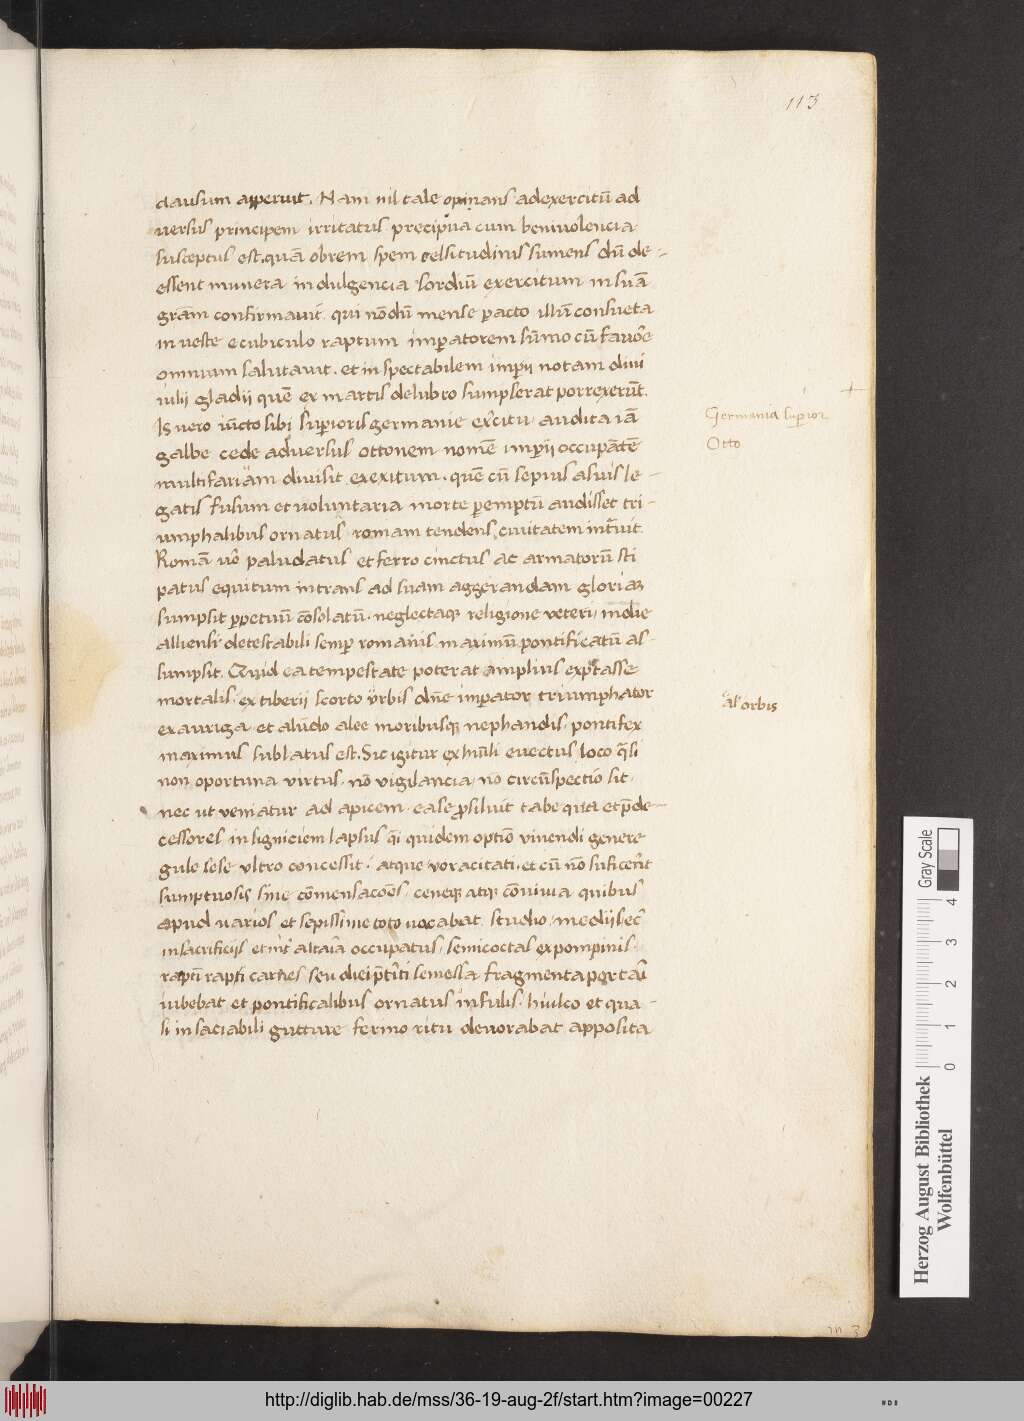 113
clausum apperuit. Nam nil tale opinans ad exercitū ad
uersus principem irritatus precipua cum beniuolencia
susceptus est. quā obrem spem celsitudinis sumens dū de-
essent munera indulgencia sordiū exercitum in suā
grām confirmauit. qui nōdū mense pacto illū consueta
in ueste e cubiculo raptum imperatorem sūmo cū fauōe
omnium salutauit. et in spectabilem impii notam diui
iulij gladij quē ex martis delubro sumpserat porrexerūt.
Is uero iūcto sibi supioris germanie excitu audita iā
galbe cede aduersus ottonem nomē impij occupātē
multifariam diuisit exexitum. quē cū sepius a suis le-
gatis fusum et uoluntaria morte pemptū audisset tri-
umphalibus ornatus romam tendens ciuitatem intrauit.
Romā uō paludatus et ferro cinctus ac armatorū sti
patus equitum intrans ad suam aggerandam gloriam
sumpsit ppetuū cōsolatū. neglectaq; religione veteri, in die
alliensi detestabili semp romanis maximū pontificatū as-
sumpsit. Quid ea tempestate poterat amplius exptasse
mortalis. ex tiberij scorto urbis dn̄e impator triumphator
ex auriga et alūdo alee moribusq; nephandis pontifex
maximus sublatus est. Sic igitur ex humili euectus loco q̄ si
non oportuna virtus. nō vigilancia. nō circūspectio sit.
nec ut veniatur ad apicem ea se psiluit tabe qua et p̄de-
cessores in signiciem lapsus q̄i quidem optīo viuendi genere
gule sese vltro concessit. atque voracitati. et cū nō suficerēt
sumptuosis sine cōmensacoēs ceneq; atq; cōuiuia quibus
apud uarios et sepissime toto uocabat. studio medijs ec̄
in sacrificijs et int altaria occupatus. semicoctas ex pompinis.
rapti carnes seu diei p̄titi semessa fragmenta portāi
iubebat et pontificalibus ornatus infulis. hiulco et qua-
si insaciabili gutture fermo ritu deuorabat apposita
Germania supior
Otto
al' orbis
m 3
Gray Scale
4 3 2 1 0
Herzog August Bibliothek
Wolfenbüttel
http://diglib.hab.de/mss/36-19-aug-2f/start.htm?image=00227